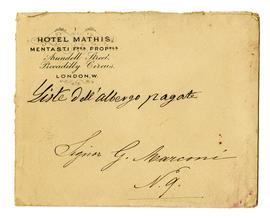 HOTEL MATHIS,
MENTASTI FRES PROPRES
Arundell Street,
Piccadilly Circus,
LONDON, W.
Liste dell'albergo pagate
Signor G. Marconi
N. 9.